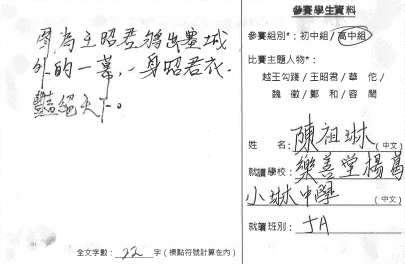 因為王昭君將出塞城
外的一幕，一身昭君衣.
豔絕天下。
全文字數：22 字（標點符號計算在內）
參賽學生資料
參賽組別*：初中組/高中組
比賽主題人物*：
越王勾踐/王昭君/華 佗/
魏 徵/鄭 和/容 閎
姓 名：陳祖琳（中文）
就讀學校：樂善堂楊葛
小琳中學（中文）
就讀班別：5A